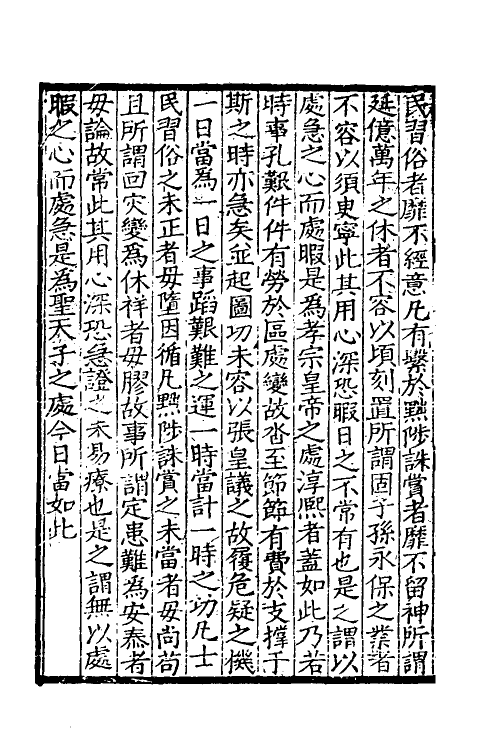 民習俗者靡不經意凡有繫於黜陟誅賞者靡不留神所謂
延億萬年之休者不容以頃刻置所謂固子孫永保之業者
不容以須臾寧此其用心深恐暇日之不常有也是之謂以
處急之心而處暇是為孝宗皇帝之處淳熙者蓋如此乃若
時事孔艱件件有勞於區處變故沓至節節有費於支撐于
斯之時亦急矣並起圖功未容以張皇議之故履危疑之機
一日當為一日之事蹈艱難之運一時當計一時之功凡士
民習俗之未正者毋墮因循凡黜陟誅賞之未當者毋尚苟
且所謂回灾變為休祥者毋膠故事所謂定患難為安泰者
毋論故常此其用心深恐急證之未易療也是之謂無以處
暇之心而處急是為聖天子之處今日當如此